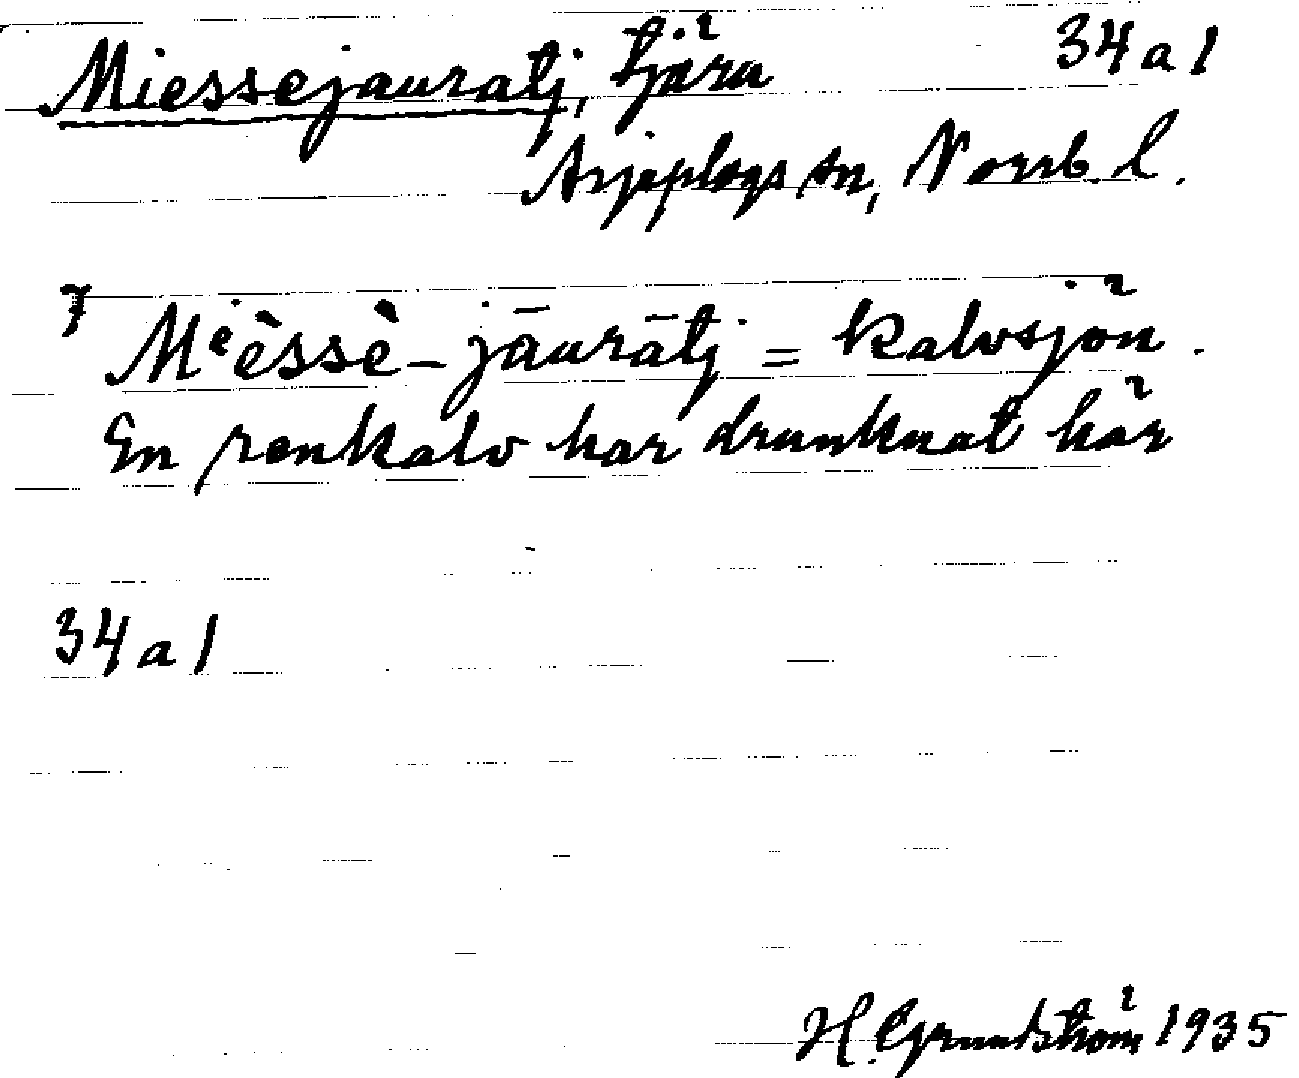 Miessejauratj, tjärn 34 a 1
Arjeplogs sn, Norrb. l.
7 Mᵉèssè-jāurātj = kalvsjön.
En renkalv har drunknat här
34 a 1
H. Grundström 1935